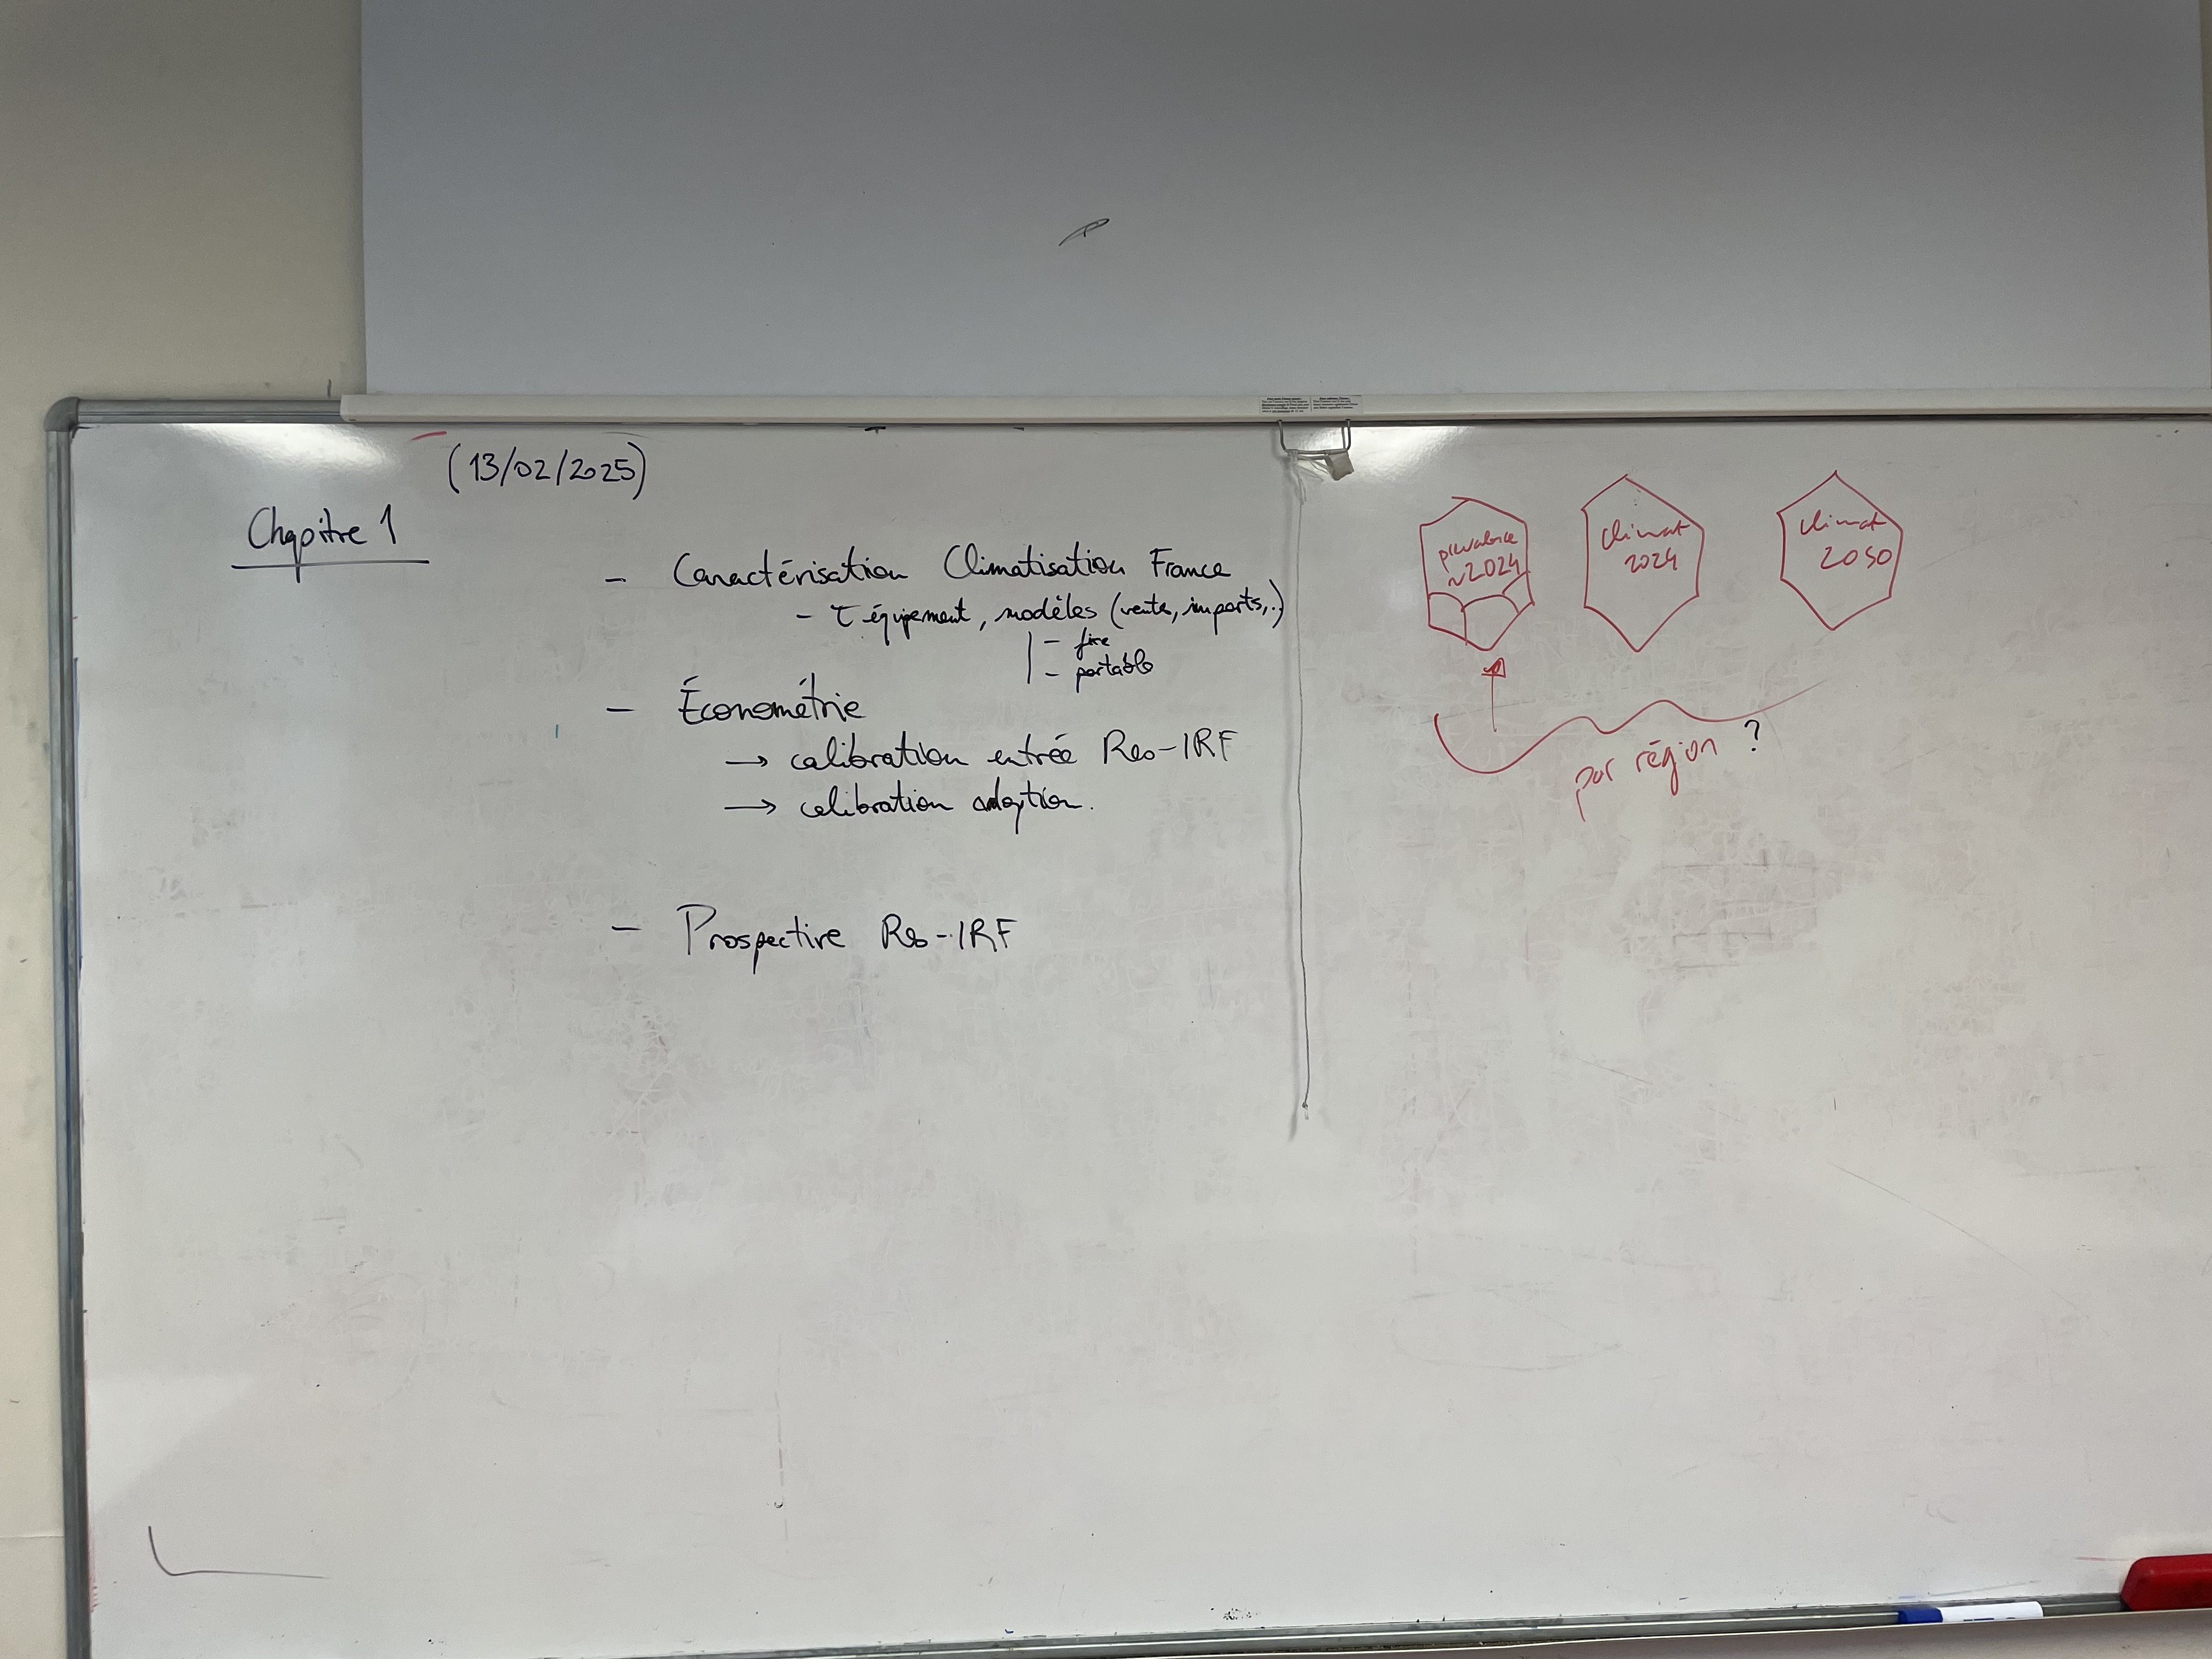 (13/02/2025)
Chapitre 1
- Caractérisation Climatisation France
- τ équipement, modèles (ventes, imports,..)
- fixe
- portable
- Économétrie
→ calibration entrée Res-IRF
→ calibration adoption.
- Prospective Res-IRF
prévalence
~2024
climat
2024
climat
2050
par région ?